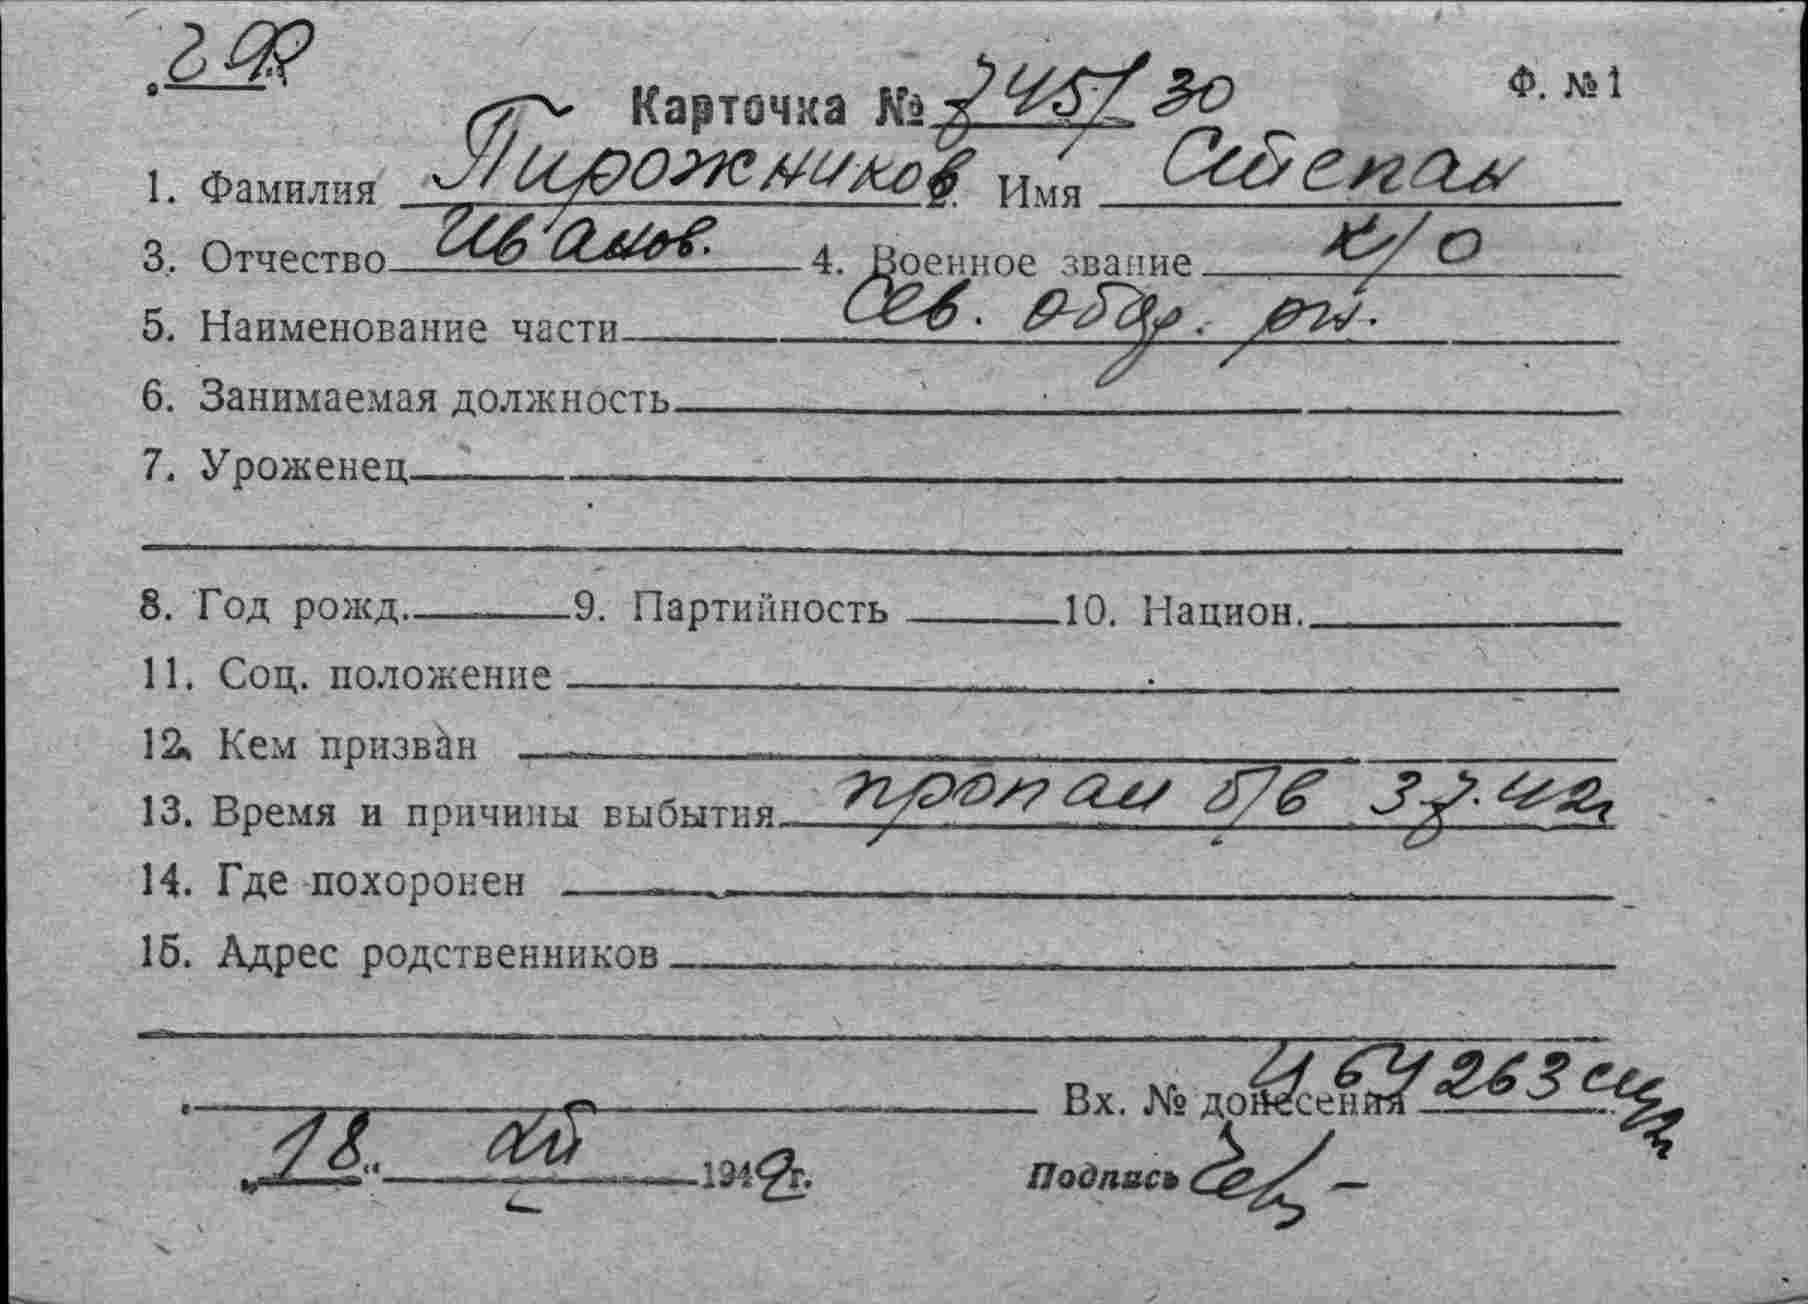 Ф. №1
Карточка № 7451/30
1. Фамилия Пирожников Имя Степан
3. Отчество Иванов. 4. Военное звание к/о
5. Наименование части Сев.
6. Занимаемая должность
7. Уроженец
8. Год рожд. 9. Партийность 10. Национ.
11. Соц. положение
12. Кем призван
13. Время и причины выбытия пропал б/в
14. Где похоронен
15. Адрес родственников
Вх. № донесения
„18“ 1942г.
Подпись